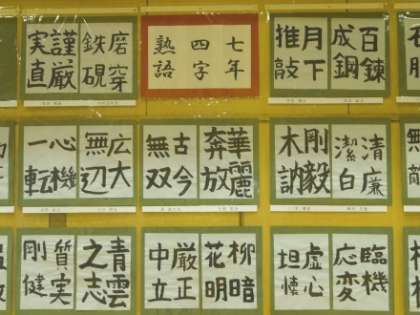 七年
四字
熟語
百錬
成鋼
月下
推敲
磨穿
鉄硯
謹厳
実直
無敵
清廉
潔白
剛毅
木訥
華麗
奔放
古今
無双
広大
無辺
心機
一転
臨機
応変
虚心
坦懐
柳暗
花明
厳正
中立
青雲
之志
質実
剛健